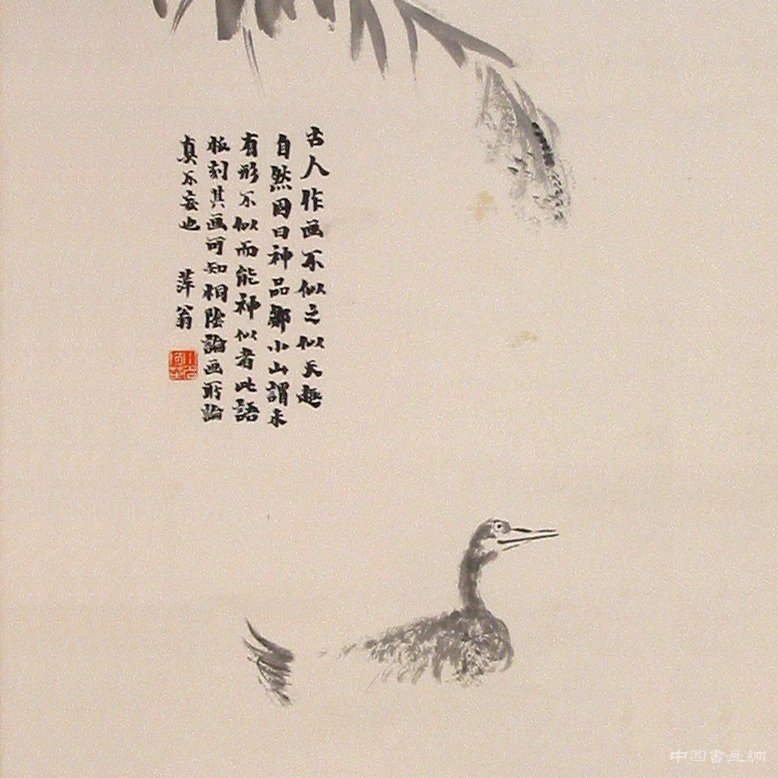 古人作画不似之似天趣
自然因曰神品鄒小山謂未
有形不似而能神似者此語
板刻其画可知桐陰論画所論
真不妄也 萍翁
中國書畫網